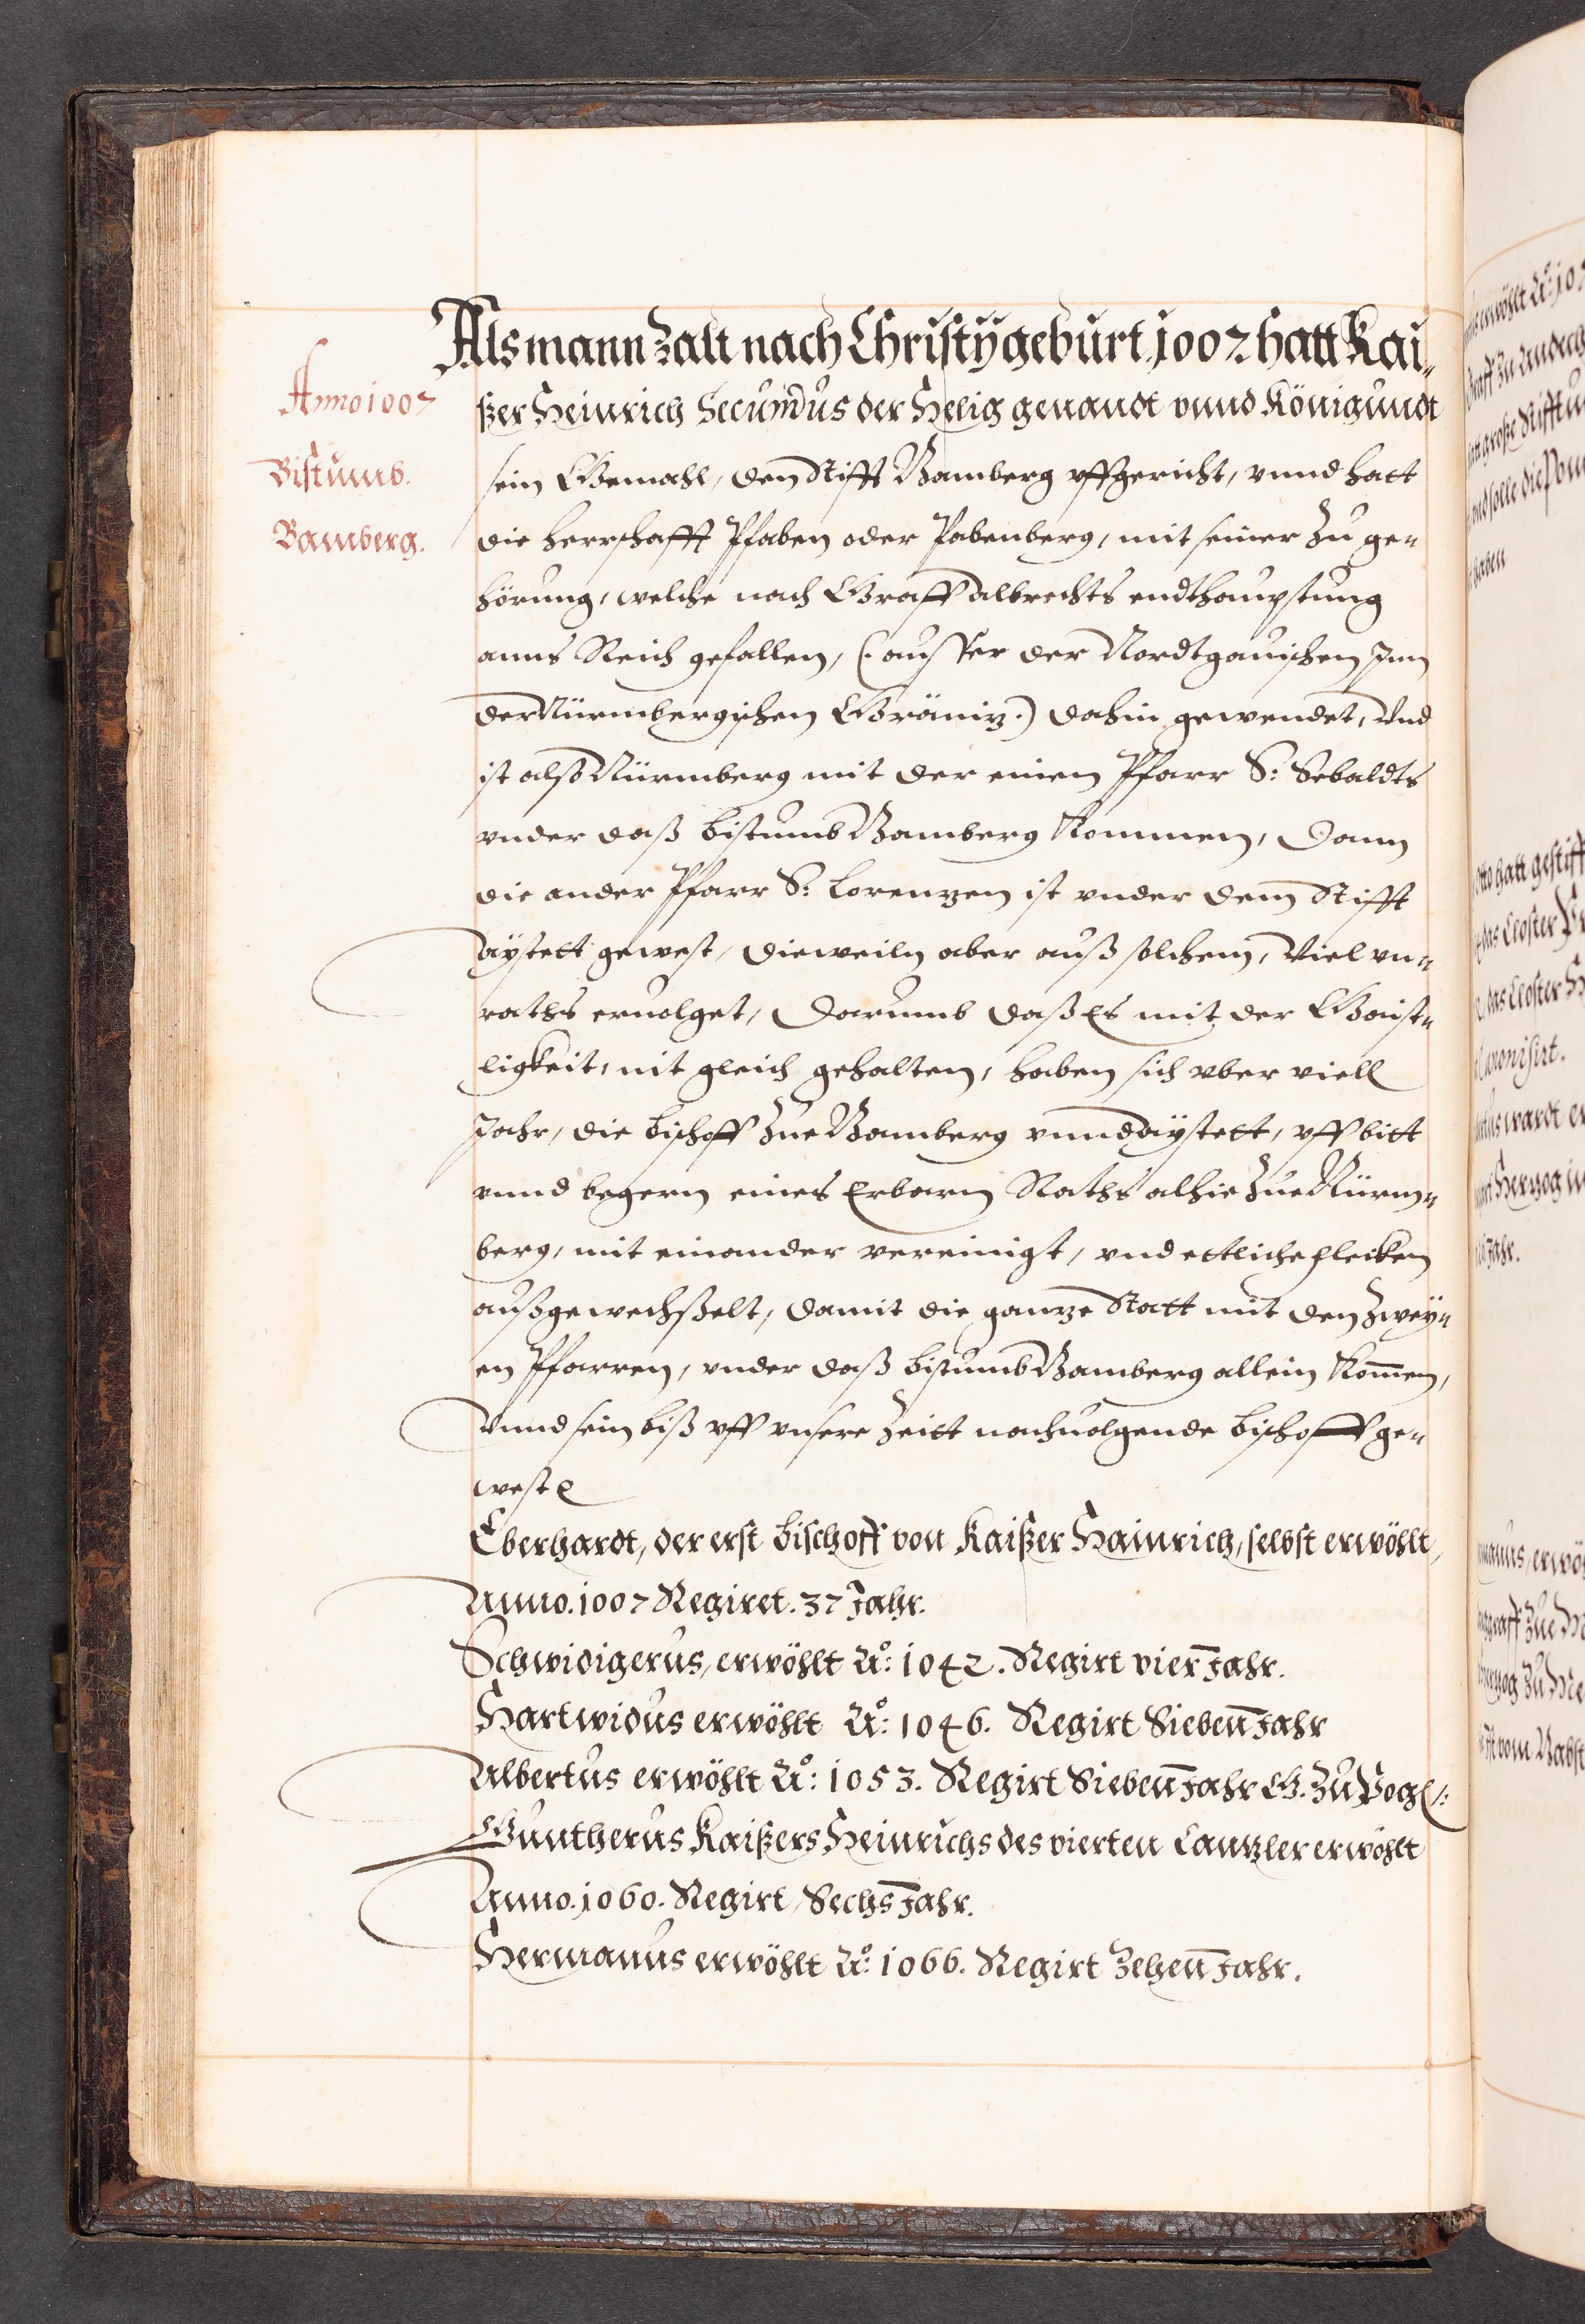 Anno 1007
Bistumb.
Bamberg.
Als mann Zalt nach Christy geburt 1007 hatt Kai„
ßer Heinrich Secundus der Helig genandt vnnd Königundt
sein Gemahl, den Stifft Bamberg vffgericht, vnnd hatt
die herrschafft Pfaben oder Pabenberg, mit seiner Zu ge„
hörung, welche nach Graff Albrechts endthauptung
anns Reich gefallen, (: ausser der Nordtgauischen Jnn
der Nürmbergischen Gräniz :) dahin gewendet, Vnd
ist also Nürmberg mit der einen Pfarr S: Sebaldts
vnder daß bistumb Bamberg Kommen, Dann
die ander Pfarr S: Lorenzen ist vnder dem Stifft
Aystett gewest, dieweiln aber auß solchem, Viel vn„
raths eruolget, Darumb daß Es mit der Gaist„
ligkeit, nit gleich gehalten, haben sich vber viell
Jahr, die bischoff Zue Bamberg vnnd Aystett, vff bitt
vnnd begern eines Erbarn Raths alhie Zue Nürm„
berg, mit einander vereinigt, vnd ettliche flecken
außgewechßelt, damit die ganze Statt mit den Zwey„
en Pfarren, vnder daß bistumb Bamberg allein Komen,
Vnnd sein biß vff vnsere Zeitt nachuolgende bischoff ge„
west
Eberhardt, der erst bischoff von Kaißer Hainrich, selbst erwöhlt,
Anno. 1007 Regiret. 37 Jahr.
Schwidigerus, erwöhlt Ao: 1042. Regirt vier Jahr.
Hartwidus erwöhlt Ao: 1046. Regirt Sieben Jahr
Albertus erwöhlt Ao: 1053. Regirt Sieben Jahr G. Zu Bog:
Guntherus Kaißers Heinrichs des vierten Canzler erwöhlt
Anno. 1060. Regirt Sechs Jahr.
Hermanus erwöhlt Ao: 1066. Regirt Zehen Jahr.